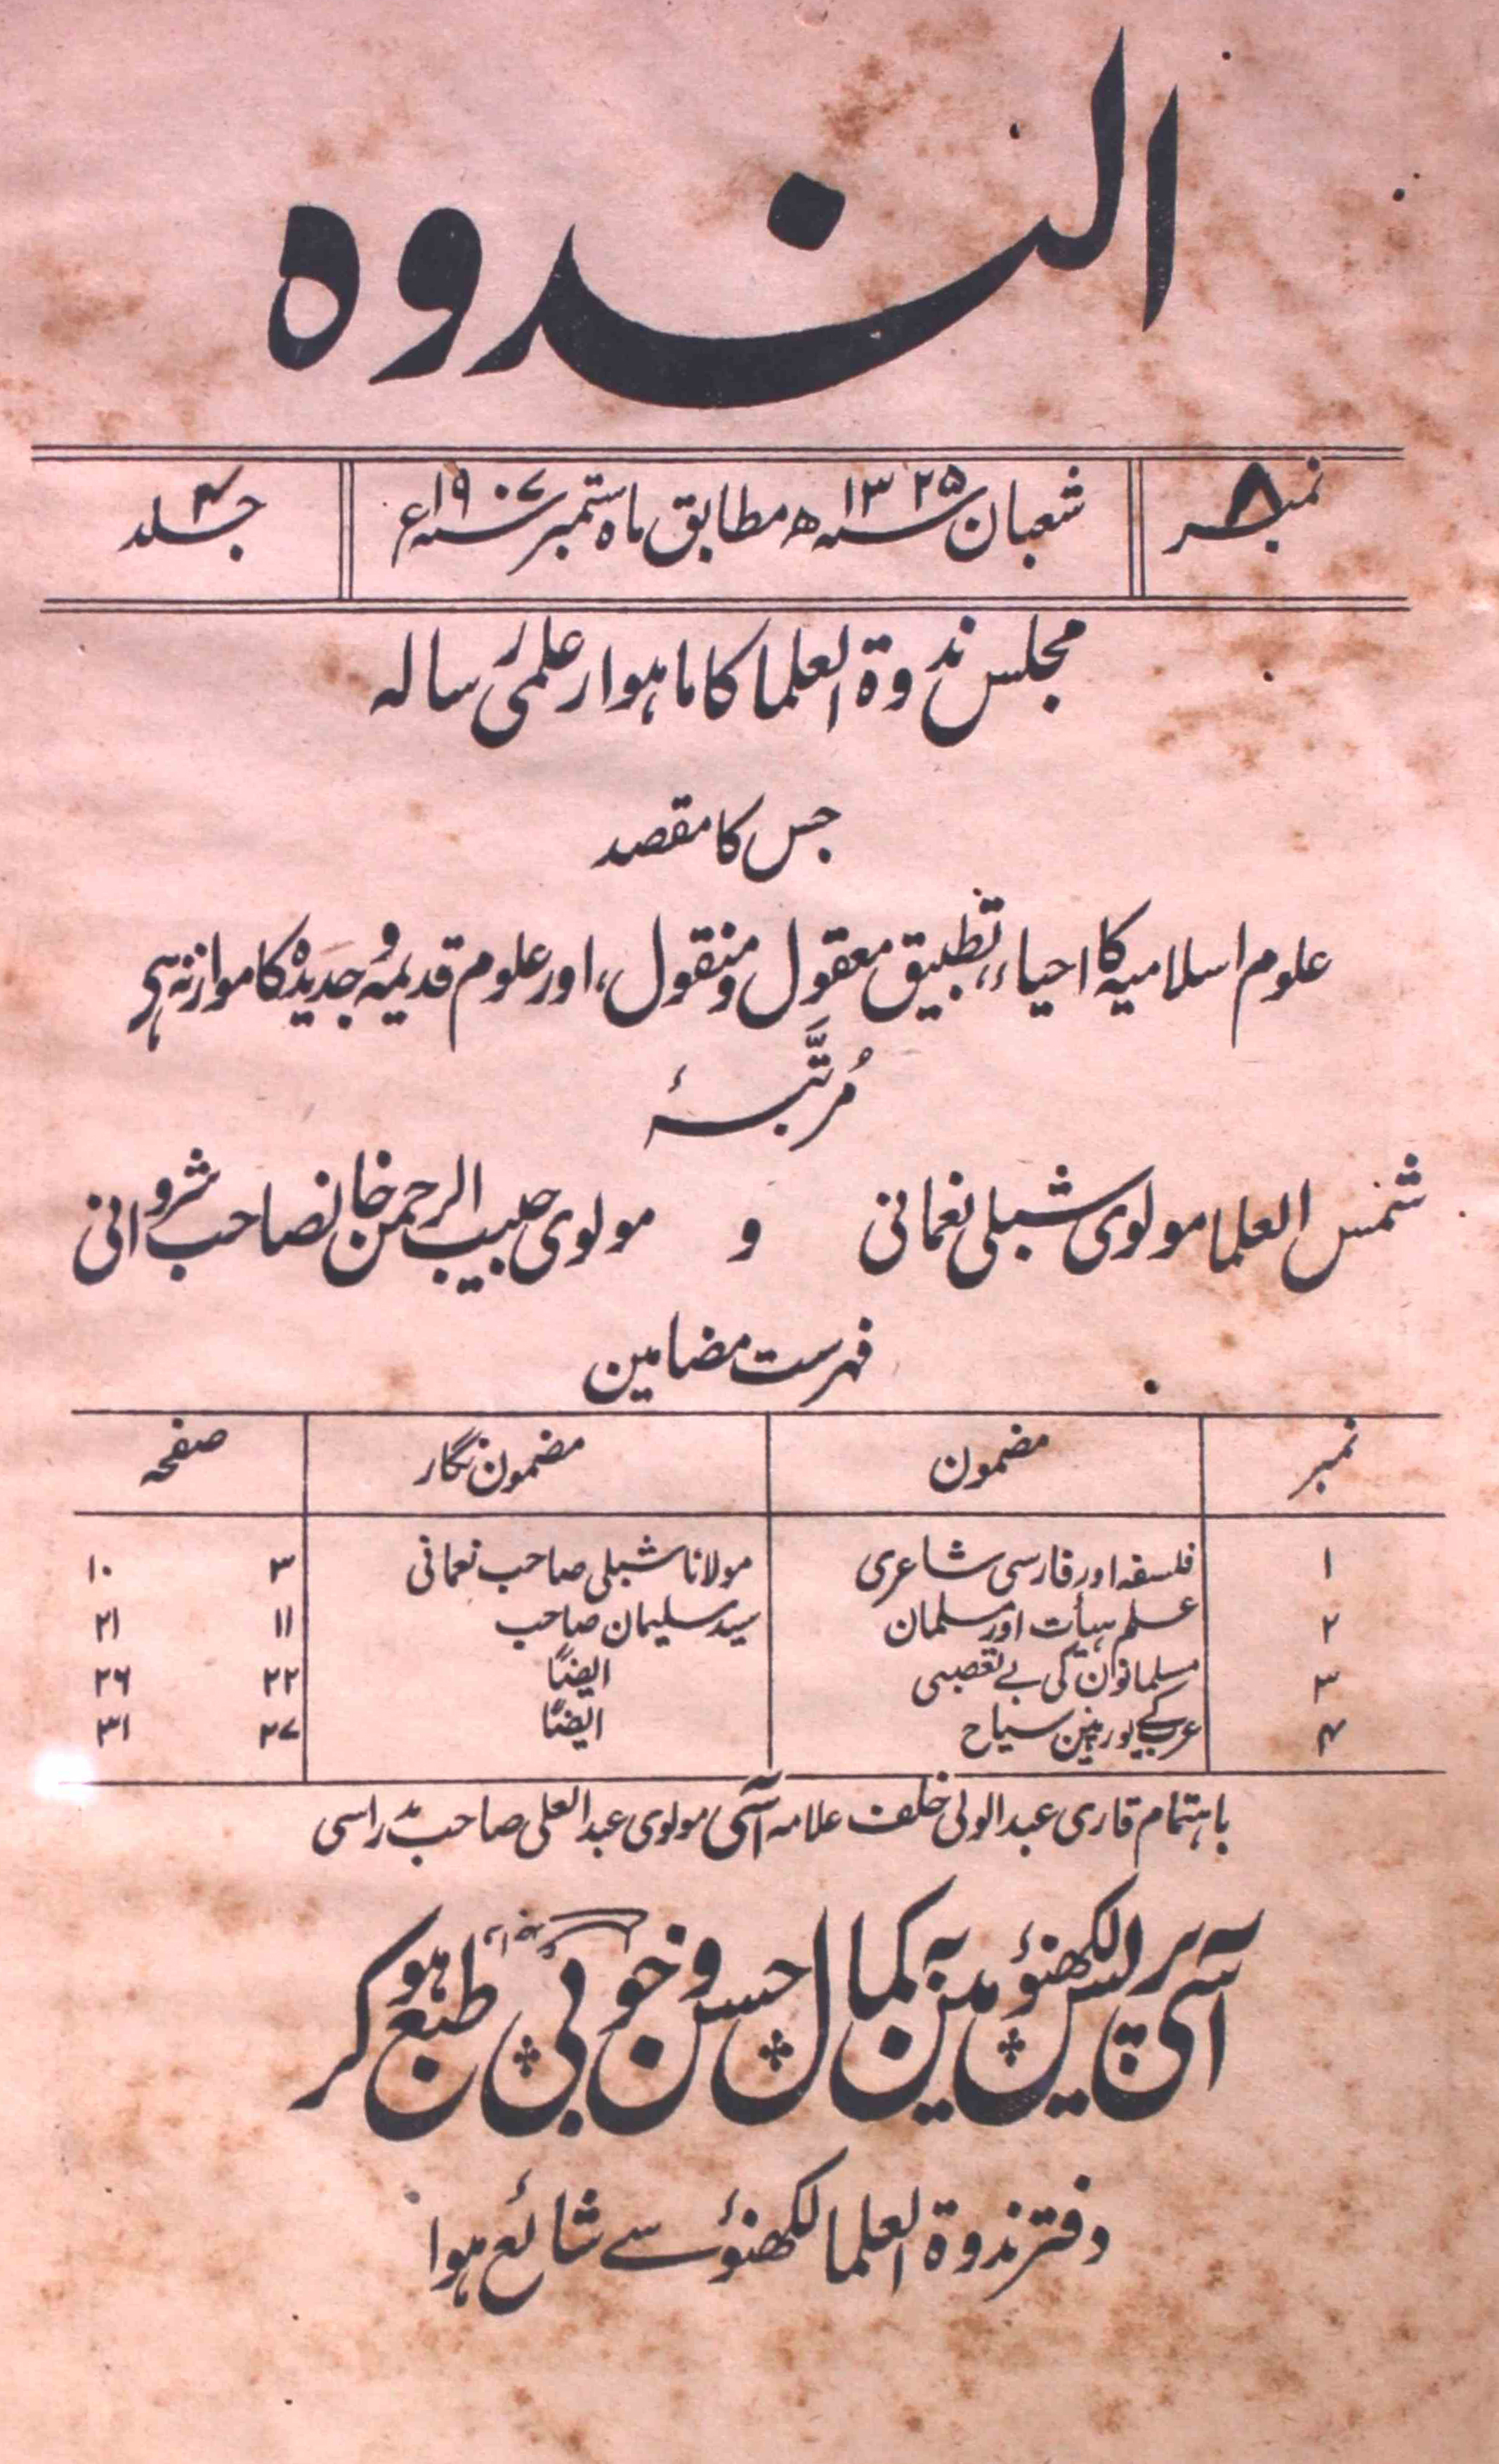 الندوه
نمبر ۸ شعبان سنہ ۱۳۲۵ھ مطابق ماہ ستمبر سنہ ۱۹۰۷ء جلد ۴
مجلس ندوۃ العلما کا ماہوار علمی رسالہ
جس کا مقصد
علوم اسلامیہ کا احیاء، تطبیق معقول و منقول، اور علوم قدیمہ و جدیدہ کا موازنہ ہی
مُرتَّبۂ
شمس العلما مولوی شبلی نعمانی و مولوی حبیب الرحمن خانصاحب شروانی
فہرست مضامین
نمبر مضمون مضمون نگار صفحہ
۱ فلسفہ اور فارسی شاعری مولانا شبلی صاحب نعمانی ۳ ۱۰
۲ علم ہیأت اور مسلمان سید سلیمان صاحب ۱۱ ۲۱
۳ مسلمانوں کی بے تعصبی ایضًا ۲۲ ۲۶
۴ عرب کے یورپین سیاح ایضًا ۲۷ ۳۱
باہتمام قاری عبدالولی خلف علامہ آسی مولوی عبدالعلی صاحب مدراسی
آسی پریس لکھنؤ مین بکمال حسن و خوبی طبع ہو کر
دفتر ندوۃ العلما لکھنؤ سے شائع ہوا